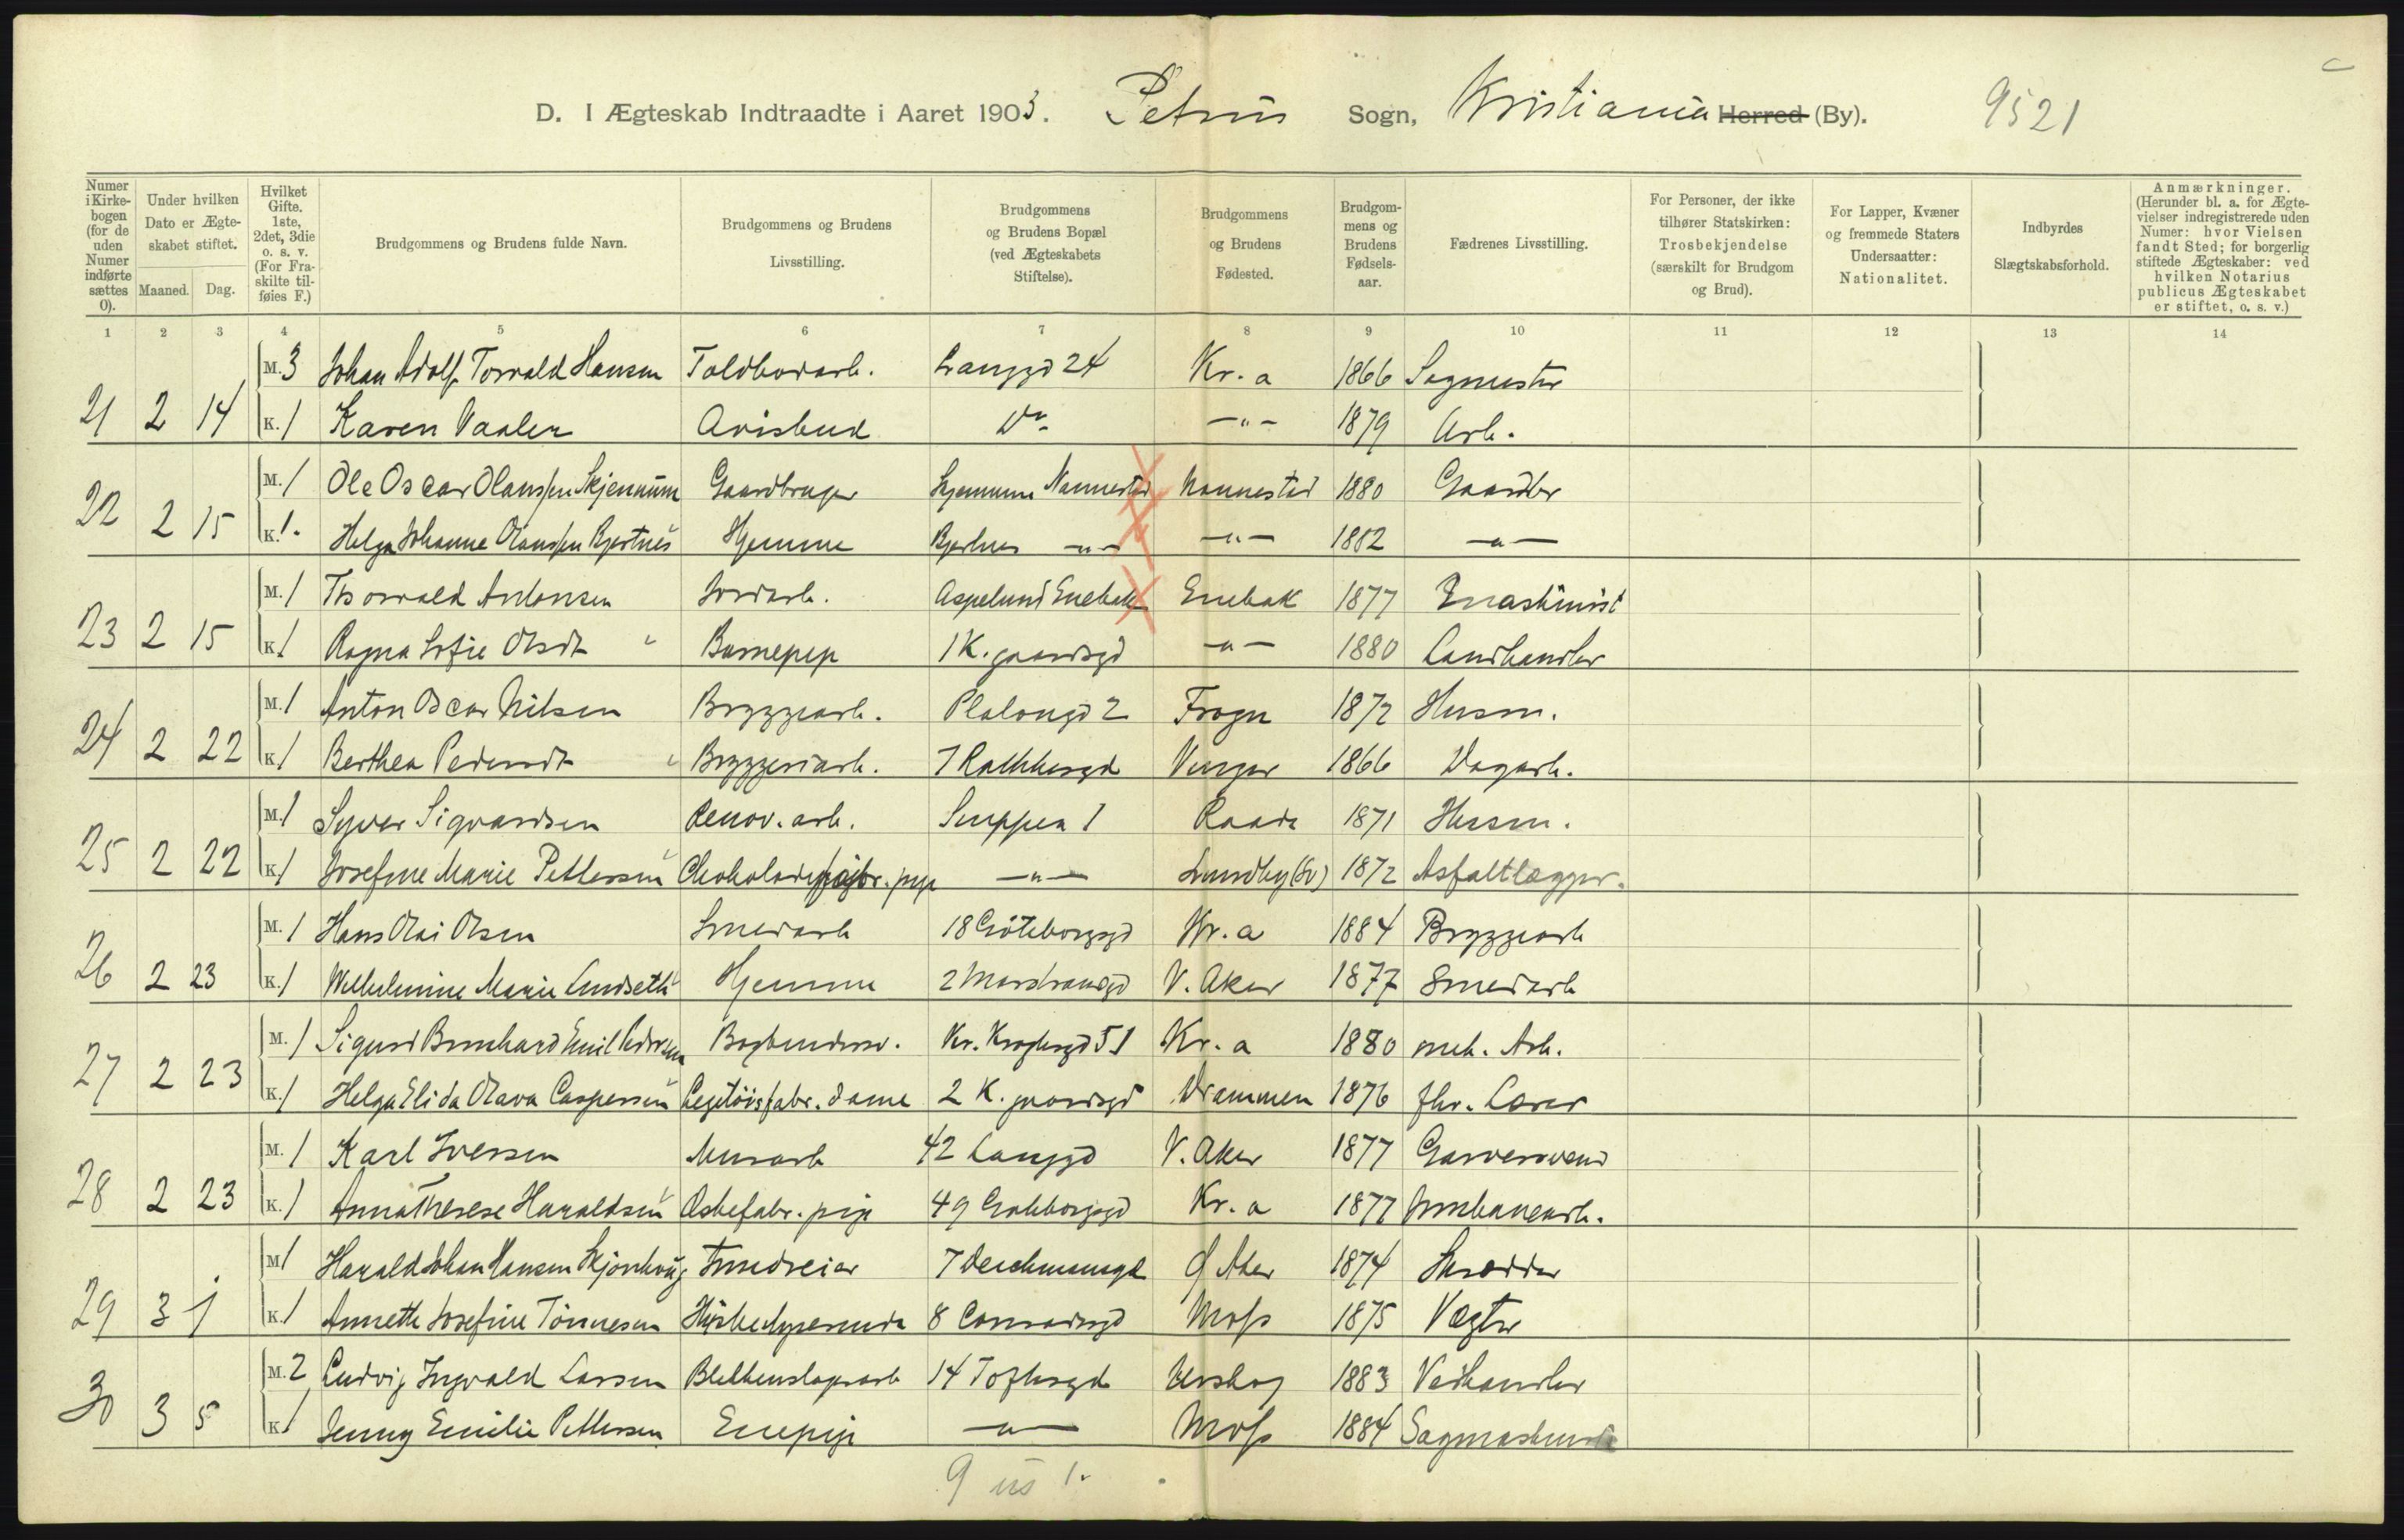 D. I Ægteskab Indtraadte i Aaret 1903. Petrus Sogn, Kristiania Herred (By). 9521
Numer i Kirkebogen (for de uden Numer indførte sættes 0). | Under hvilken Dato er Ægteskabet stiftet. Maaned. Dag. | Hvilket Gifte. 1ste, 2det, 3die o. s. v. (For Fraskilte tilføies F.) | Brudgommens og Brudens fulde Navn. | Brudgommens og Brudens Livsstilling. | Brudgommens og Brudens Bopæl (ved Ægteskabets Stiftelse). | Brudgommens og Brudens Fødested. | Brudgommens og Brudens Fødselsaar. | Fædrenes Livsstilling. | For Personer, der ikke tilhører Statskirken: Trosbekjendelse (særskilt for Brudgom og Brud). | For Lapper, Kvæner og fremmede Staters Undersaatter: Nationalitet. | Indbyrdes Slægtskabsforhold. | Anmærkninger. (Herunder bl. a. for Ægtevielser indregistrerede uden Numer: hvor Vielsen fandt Sted; for borgerlig stiftede Ægteskaber: ved hvilken Notarius publicus Ægteskabet er stiftet, o. s. v.)
1 2 3 4 5 6 7 8 9 10 11 12 13 14
M. 3 Johan Adolf Torvald Hansen Toldbodarb. Langgd 24 Kr.a 1866 Sagmester
21 2 14 K. 1 Karen Vaaler Avisbud Do -"- 1879 Arb.
M. 1 Ole Oscar Olaussen Skjennum Gaardbruger Skjennum Nannestad Nannestad 1880 Gaardbr
22 2 15 K. 1. Helga Johanne Olaussen Bjertnes Hjemme Bjertnes -"- -"- 1882 -"-
M. 1 Thorvald Antonsen Jordarb. Aspelund Enebak Enebak 1877 Maskinist
23 2 15 K. 1 Ragna Sofie Olsdt " Barnepige 1 K.gaardsgd -"- 1880 Landhandler
M. 1 Anton Oscar Nilsen Bryggearb. Platougd 2 Frogn 1872 Husm.
24 2 22 K. 1 Berthea Pedersdt " Bryggeriarb. 7 Rathkesgd Vinger 1866 Dagarb.
M. 1 Syver Sigvardsen Renov. arb. Sarppen 1 Raade 1871 Husm.
25 2 22 K. 1 Josefine Marie Pettersen Chokoladefabr. pige -"- Lundby (Sv) 1872 Asfaltlægger.
M. 1 Hans Olai Olsen Smedarb 18 Göteborggd Kr.a 1884 Bryggearb
26 2 23 K. 1 Wilhelmine Marie Lundseth Hjemme 2 Marstrandgd V. Aker 1877 Smedarb
M. 1 Sigurd Bernhard Emil Pedersen Bogbindersv. Kr. Kroghsgd 51 Kr.a 1880 mek. Arb.
27 2 23 K. 1 Helga Elida Olava Caspersen Legetöisfabr. dame 2 K. gaardsgd Drammen 1876 fhv. Lærer
M. 1 Karl Iversen Murarb 42 Langgd V. Aker 1877 Garversvend
28 2 23 K. 1 Anna Therese Haraldsen Æskefabr. pige 49 Göteborggd Kr.a 1877 Jernbanearb.
M 1 Harald Johan Hansen Skjönhaug Trædreier 7 Deichmansgd Ø Aker 1874 Skrædder
29 3 1 K. 1 Annette Josefine Tönnesen Hyskebyerende 8 Conradsgd Moss 1875 Vægter
M. 2 Ludvig Ingvald Larsen Blikkenslagerarb 14 Toftesgd Urskog 1883 Vedhandler
30 3 5 K 1 Jenny Emilie Pettersen Enepige -"- Moss 1884 Sagmaskinist
9 us 1.